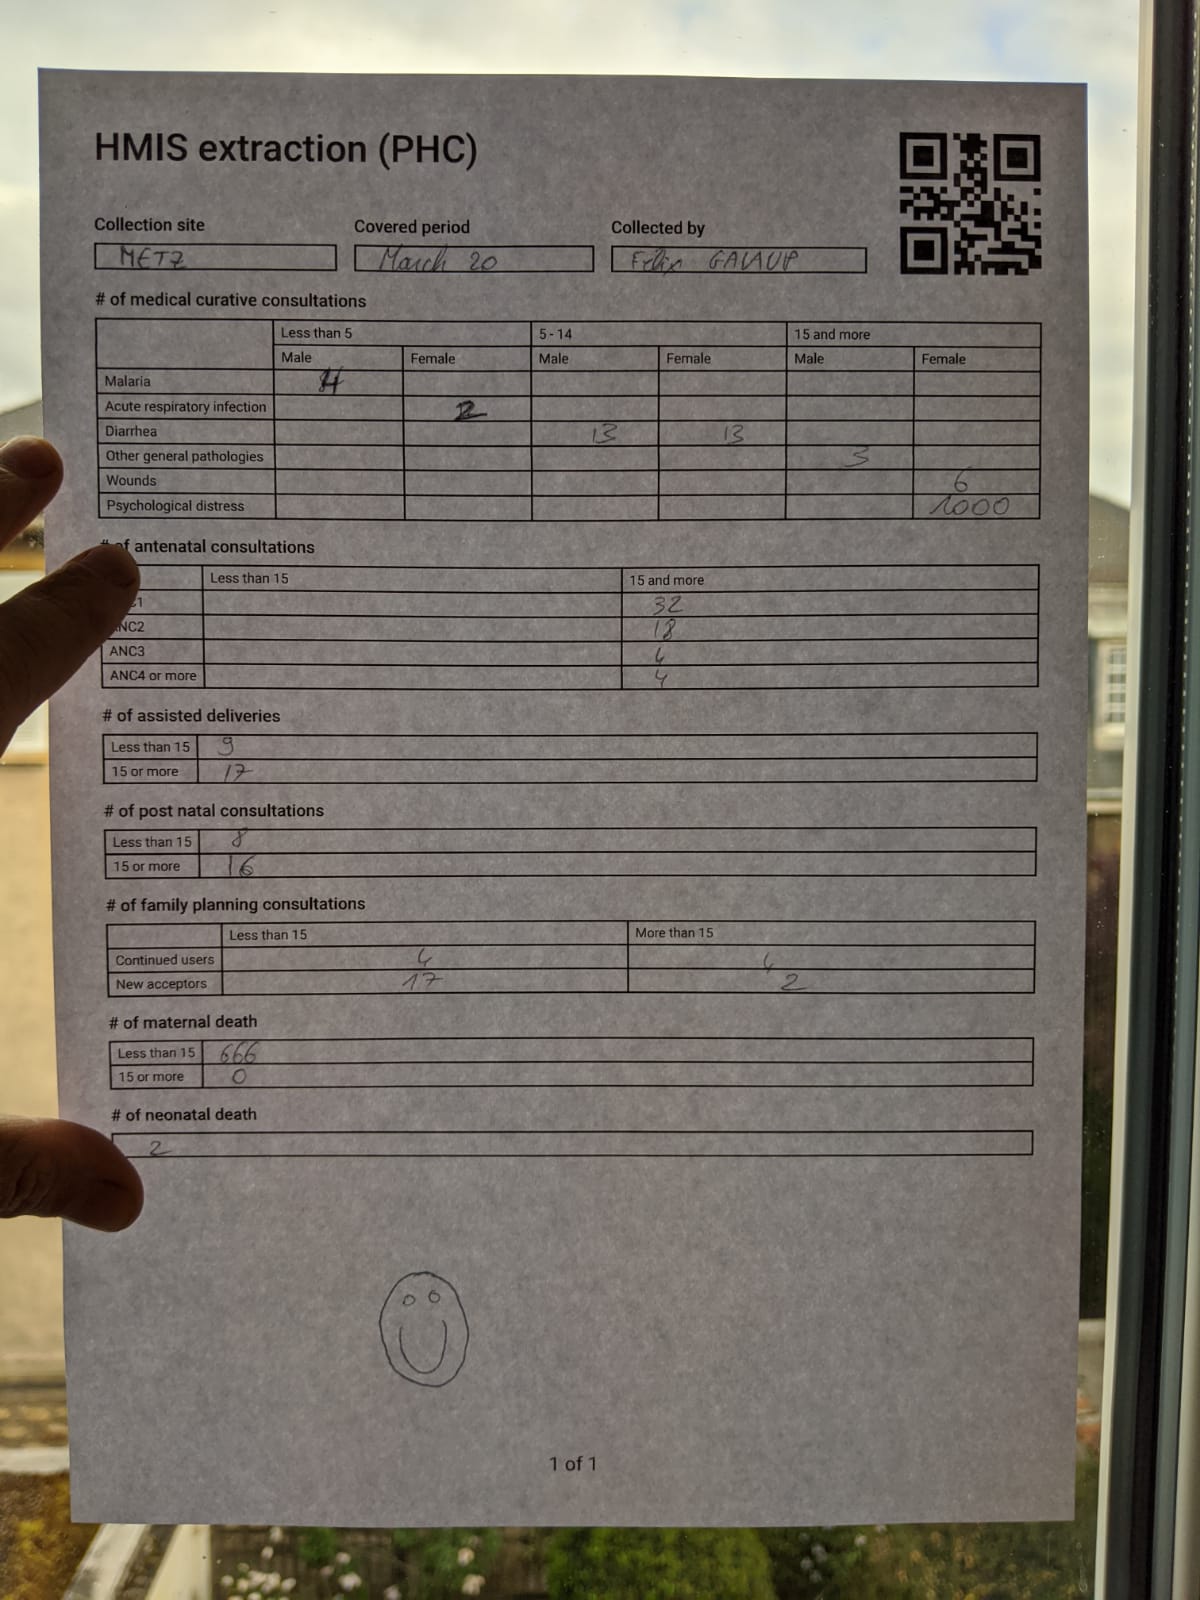 HMIS extraction (PHC)
Collection site Covered period Collected by
METZ March 20 Félix
# of medical curative consultations
Less than 5 5 - 14 15 and more
Male Female Male Female Male Female
Malaria
Acute respiratory infection 2
Diarrhea 13 13
Other general pathologies 3
Wounds 6
Psychological distress 1000
# of antenatal consultations
Less than 15 15 and more
32
ANC2 18
ANC3 4
ANC4 or more 4
# of assisted deliveries
Less than 15 9
15 or more 17
# of post natal consultations
Less than 15 8
15 or more 16
# of family planning consultations
Less than 15 More than 15
Continued users 4 4
New acceptors 17 2
# of maternal death
Less than 15 666
15 or more 0
# of neonatal death
2
1 of 1